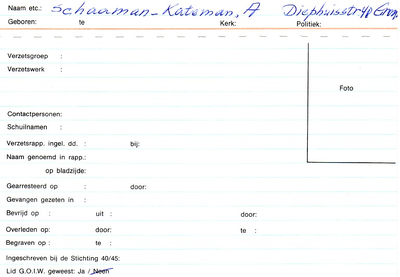 Naam etc.: Schaarman-Kateman, A Diephuisstr 48 Gron
Geboren: te Kerk: Politiek:
Verzetsgroep :
Verzetswerk :
Foto
Contactpersonen:
Schuilnamen :
Verzetsrapp. ingel. dd. : bij:
Naam genoemd in rapp.:
op bladzijde:
Gearresteerd op : door:
Gevangen gezeten in :
Bevrijd op : uit : door:
Overleden op: door: te :
Begraven op : te :
Ingeschreven bij de Stichting 40/45:
Lid G.O.I.W. geweest: Ja / Neen